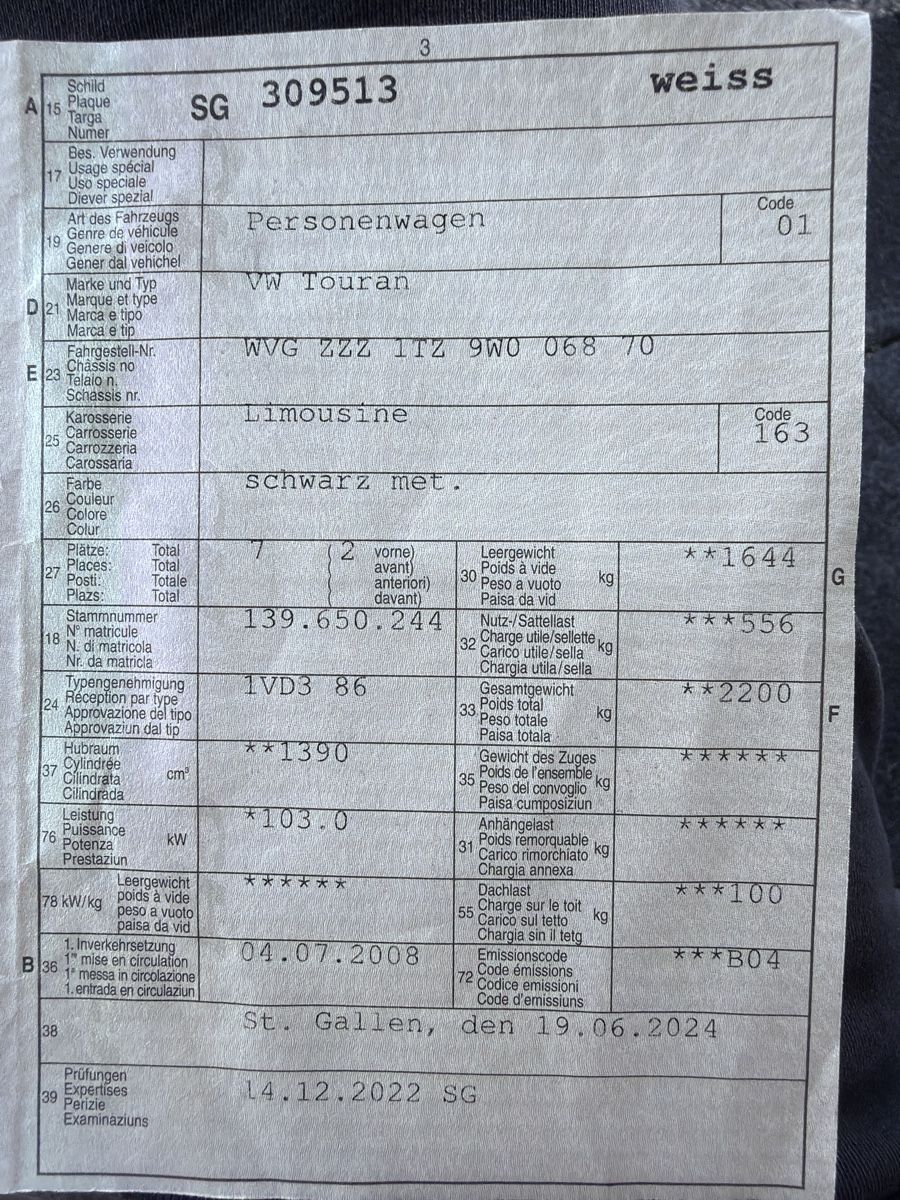 3
A 15 Schild
Plaque
Targa
Numer
SG 309513 weiss
17 Bes. Verwendung
Usage spécial
Uso speciale
Diever spezial
19 Art des Fahrzeugs
Genre de véhicule
Genere di veicolo
Gener dal vehichel
Personenwagen
Code
01
D 21 Marke und Typ
Marque et type
Marca e tipo
Marca e tip
VW Touran
E 23 Fahrgestell-Nr.
Châssis no
Telaio n.
Schassis nr.
WVG ZZZ 1TZ 9W0 068 70
25 Karosserie
Carrosserie
Carrozzeria
Carossaria
Limousine
Code
163
26 Farbe
Couleur
Colore
Colur
schwarz met.
27 Plätze: Total
Places: Total
Posti: Totale
Plazs: Total
7 ( 2 vorne)
( avant)
( anteriori)
( davant)
30 Leergewicht
Poids à vide
Peso a vuoto
Paisa da vid
kg
**1644
G
18 Stammnummer
N° matricule
N. di matricola
Nr. da matricla
139.650.244
32 Nutz-/Sattellast
Charge utile/sellette
Carico utile/sella
Chargia utila/sella
kg
***556
24 Typengenehmigung
Réception par type
Approvazione del tipo
Approvaziun dal tip
1VD3 86
33 Gesamtgewicht
Poids total
Peso totale
Paisa totala
kg
**2200
F
37 Hubraum
Cylindrée
Cilindrata
Cilindrada
cm³
**1390
35 Gewicht des Zuges
Poids de l'ensemble
Peso del convoglio
Paisa cumposiziun
kg
******
76 Leistung
Puissance
Potenza
Prestaziun
kW
*103.0
31 Anhängelast
Poids remorquable
Carico rimorchiato
Chargia annexa
kg
******
78 kW/kg Leergewicht
poids à vide
peso a vuoto
paisa da vid
******
55 Dachlast
Charge sur le toit
Carico sul tetto
Chargia sin il tetg
kg
***100
B 36 1. Inverkehrsetzung
1re mise en circulation
1a messa in circolazione
1. entrada en circulaziun
04.07.2008
72 Emissionscode
Code émissions
Codice emissioni
Code d'emissiuns
***B04
38 St. Gallen, den 19.06.2024
39 Prüfungen
Expertises
Perizie
Examinaziuns
14.12.2022 SG